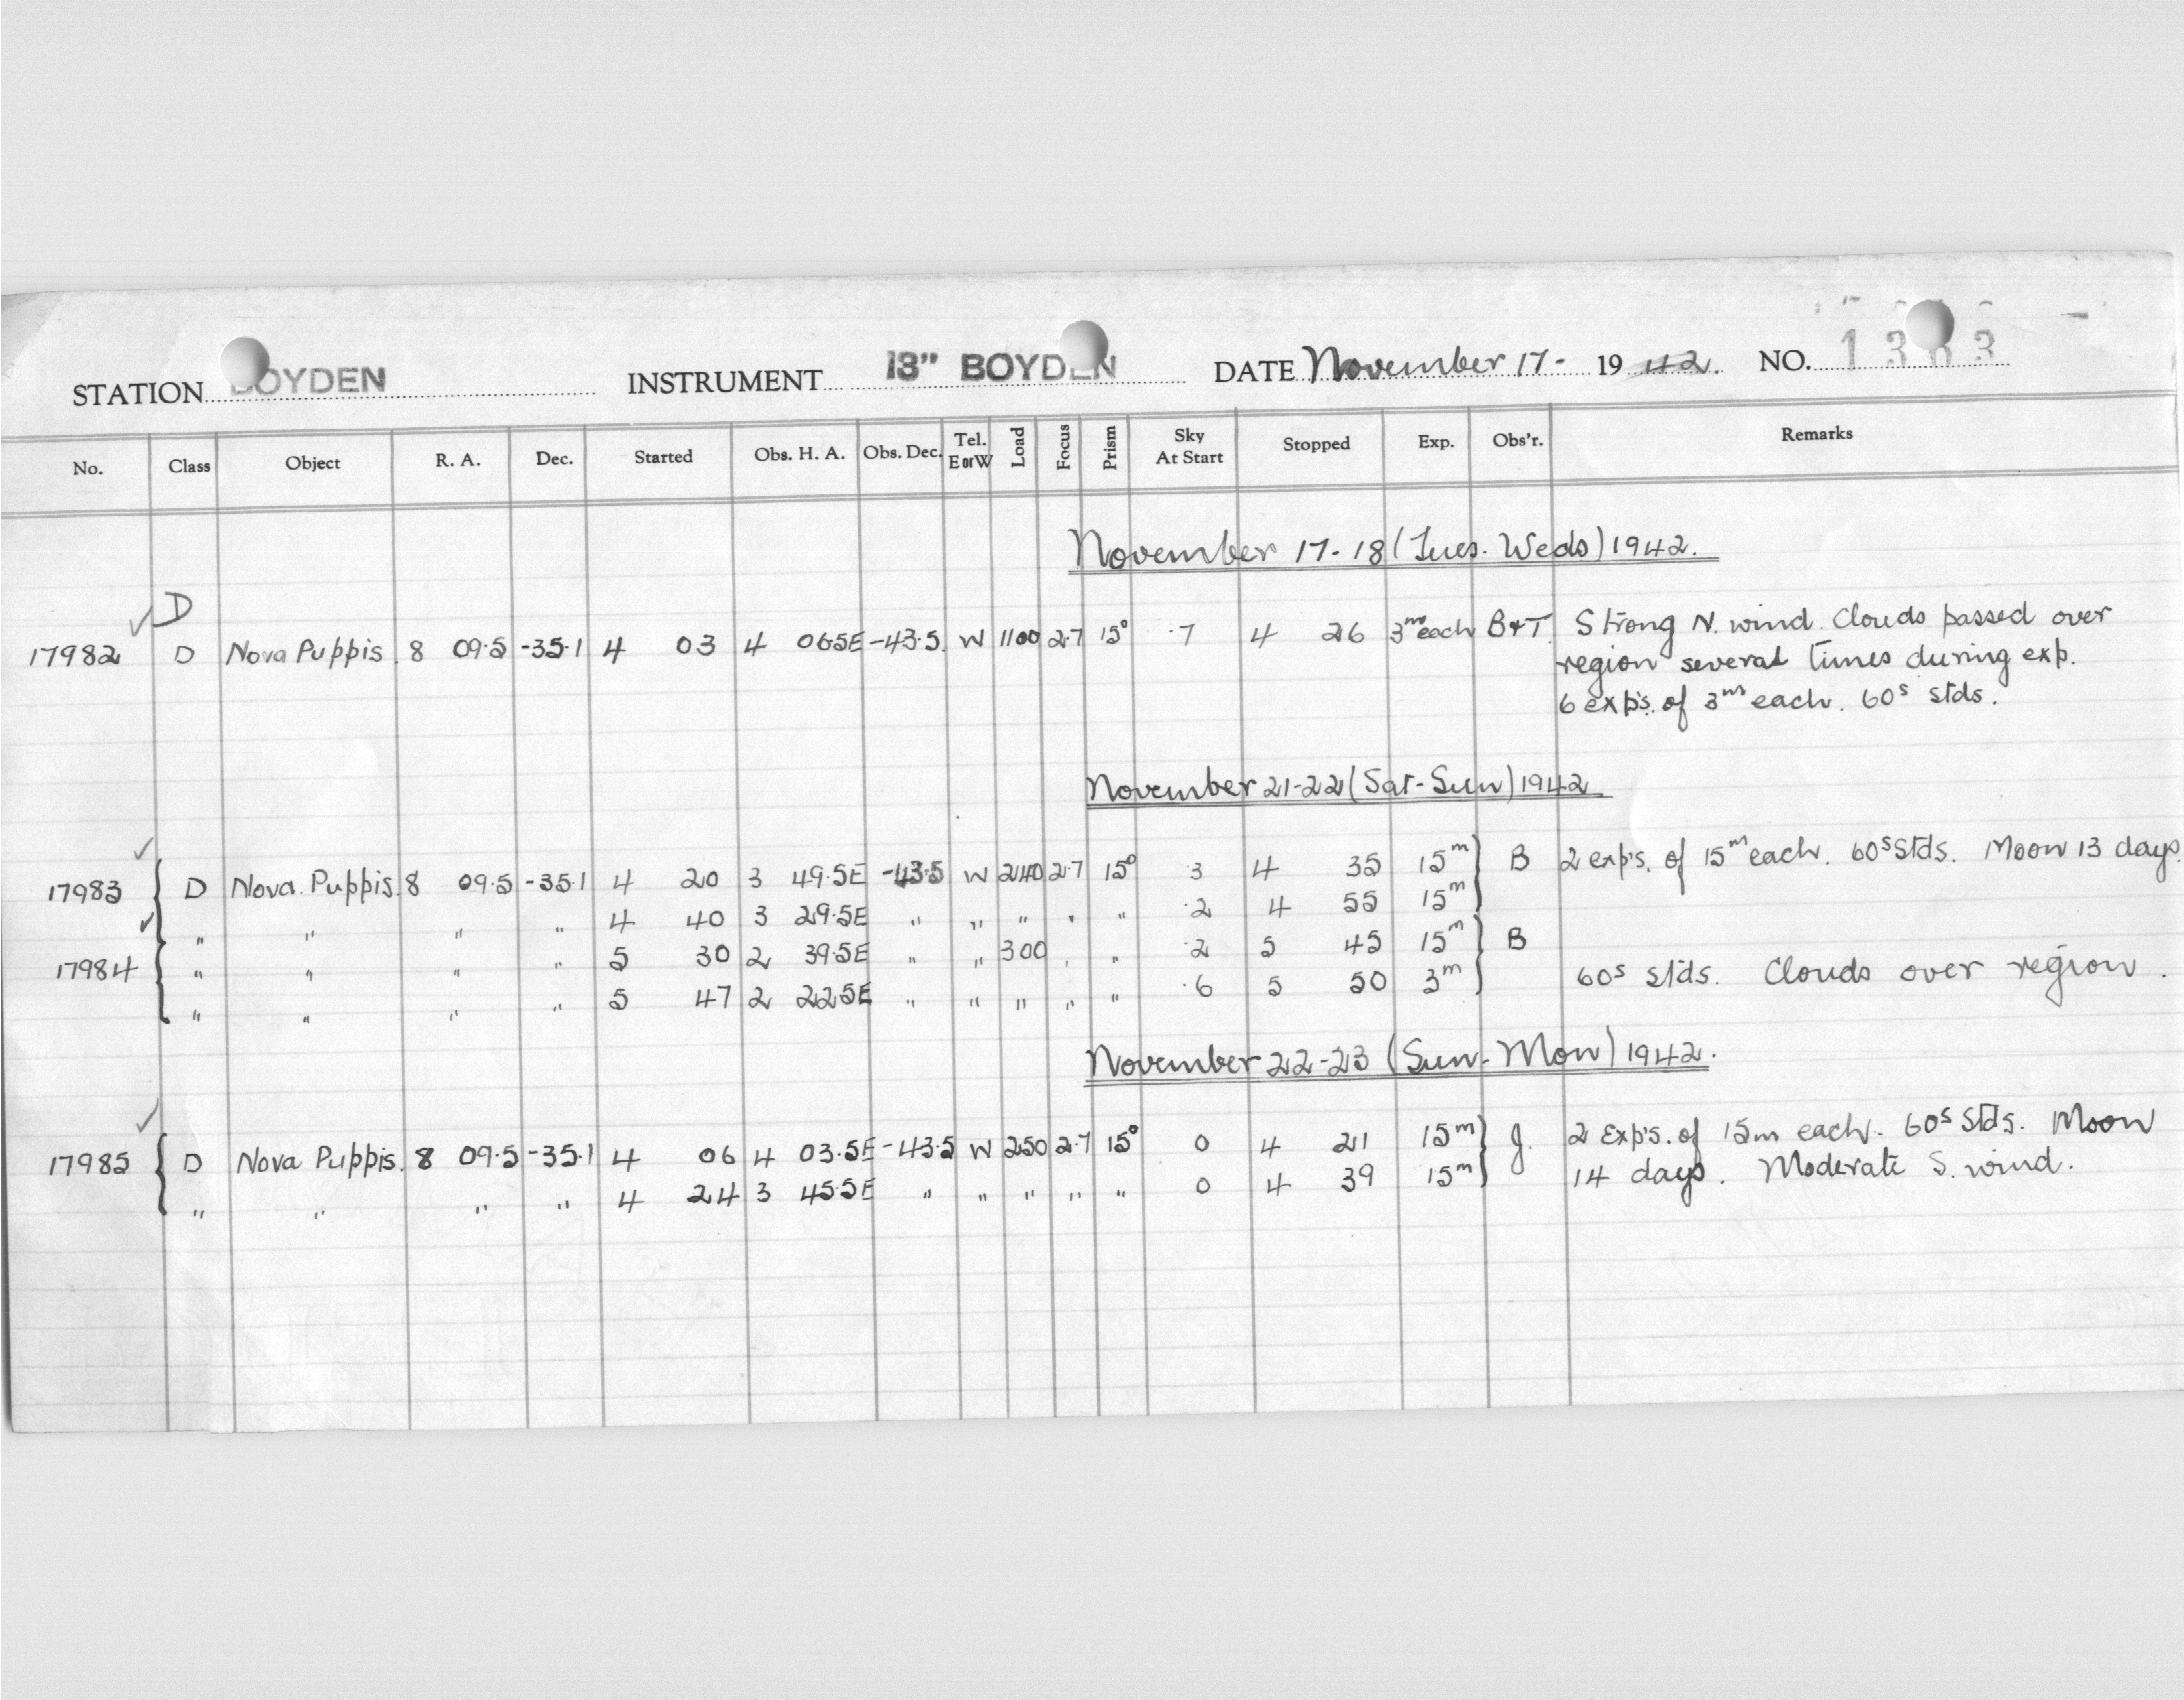 STATION BOYDEN INSTRUMENT 13" BOYDEN DATE November 17- 1942. NO.
No. Class Object R. A. Dec. Started Obs. H. A. Obs. Dec. Tel. E or W Load Focus Prism Sky At Start Stopped Exp. Obs'r. Remarks
November 17-18 (Tues. Weds) 1942.
D
17982 D Nova Puppis. 8 09.5 -35.1 4 03 4 06.5E -43.5. W 1100 2.7 15° .7 4 26 3ᵐ each B&T. Strong N. wind. Clouds passed over
region several times during exp.
6 exp's. of 3ᵐ each. 60ˢ stds.
November 21-22 (Sat-Sun) 1942
17983 D Nova Puppis. 8 09.5 -35.1 4 20 3 49.5E -43.5 W 240 2.7 15° .3 4 35 15ᵐ B 2 exp's. of 15ᵐ each. 60ˢ Stds. Moon 13 days.
" " " " 4 40 3 29.5E " " " " " .2 4 55 15ᵐ
17984 " " " " 5 30 2 39.5E " " 300 " " .2 5 45 15ᵐ B
" " " " 5 47 2 22.5E " " " " " .6 5 50 3ᵐ 60ˢ stds. Clouds over region.
November 22-23 (Sun-Mon) 1942.
17985 D Nova Puppis. 8 09.5 -35.1 4 06 4 03.5E -43.5 W 250 2.7 15° 0 4 21 15ᵐ J. 2 Exp's. of 15m each. 60ˢ Stds. Moon
" " " " 4 24 3 45.5E " " " " " 0 4 39 15ᵐ 14 days. Moderate S. wind.